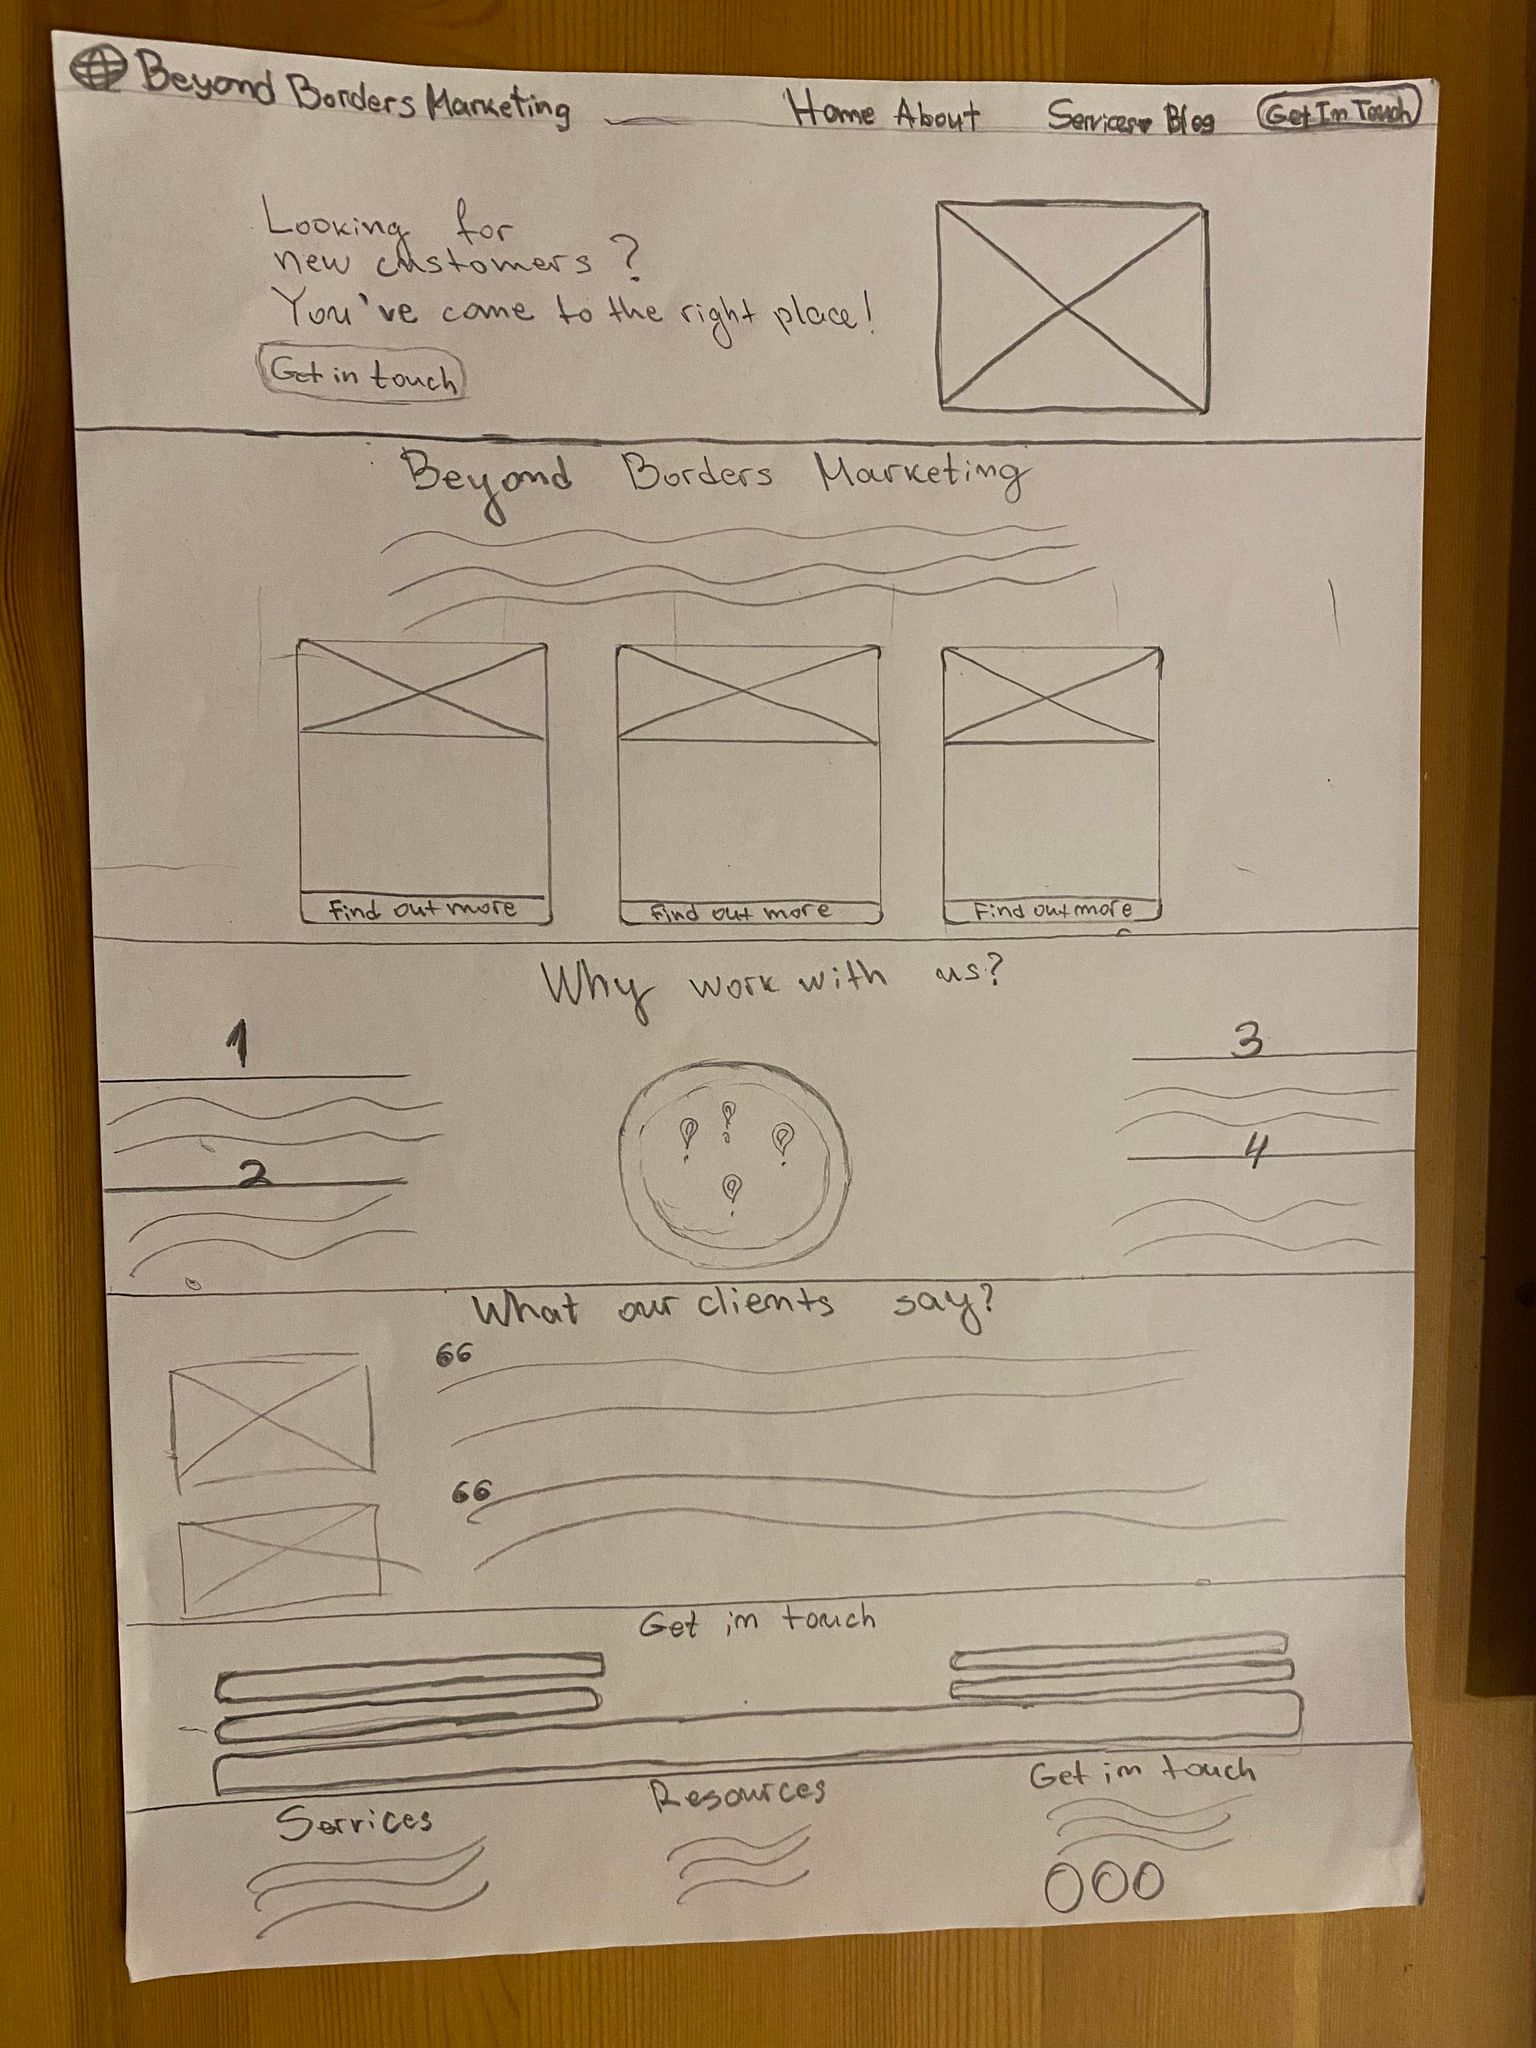 Beyond Borders Marketing
Home About Services Blog Get In Touch
Looking for
new customers?
You've come to the right place!
Get in touch
Beyond Borders Marketing
Find out more
Find out more
Find out more
Why work with us?
1
2
3
4
What our clients say?
66
66
Get in touch
Services
Resources
Get in touch